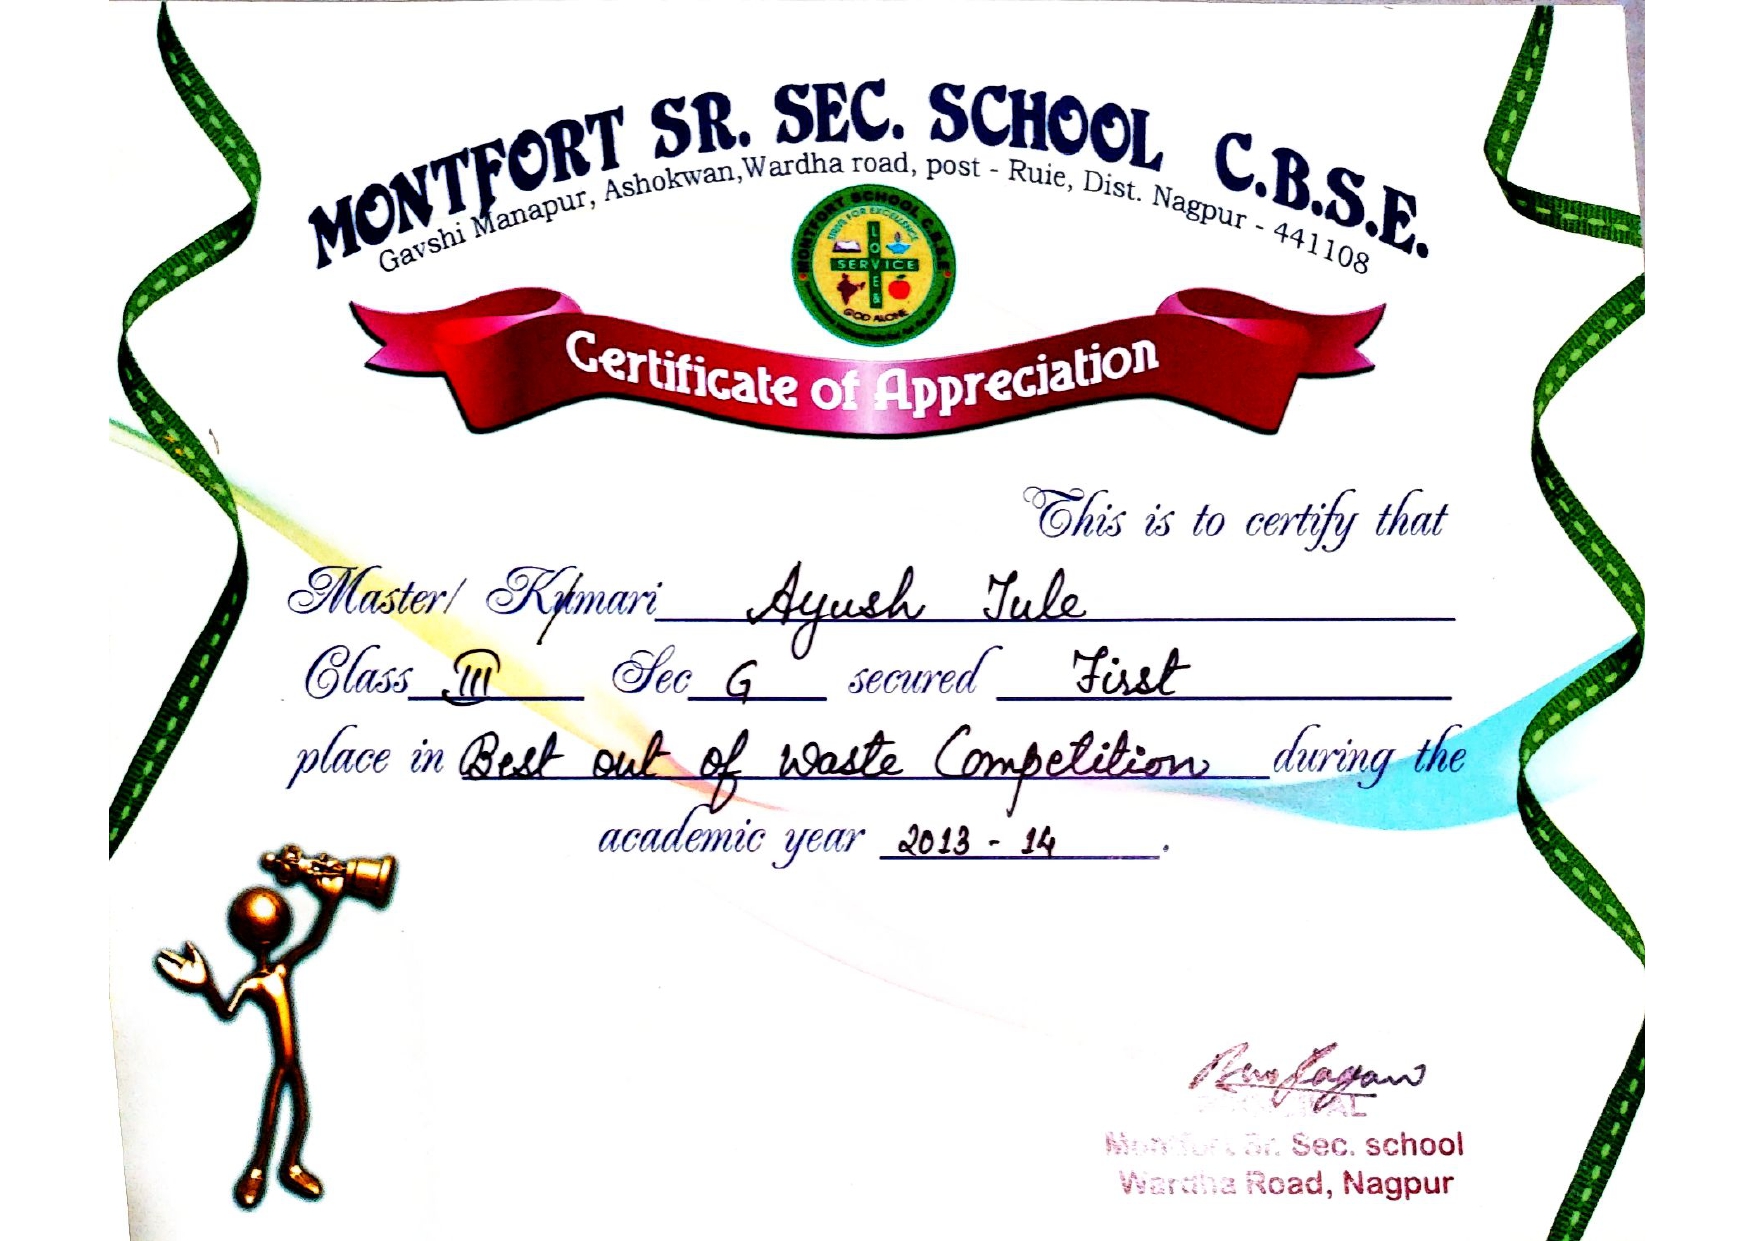 MONTFORT SR. SEC. SCHOOL C.B.S.E.
Gavshi Manapur, Ashokwan, Wardha road, post - Ruie, Dist. Nagpur - 441108
MONTFORT SCHOOL C.B.S.E
STRIVE FOR EXCELLENCE
LOVE &
SERVICE
GOD ALONE
Certificate of Appreciation
This is to certify that
Master/ Kumari Ayush Tule
Class III Sec G secured First
place in Best out of Waste Competition during the
academic year 2013 - 14.
PRINCIPAL
Montfort Sr. Sec. school
Wardha Road, Nagpur